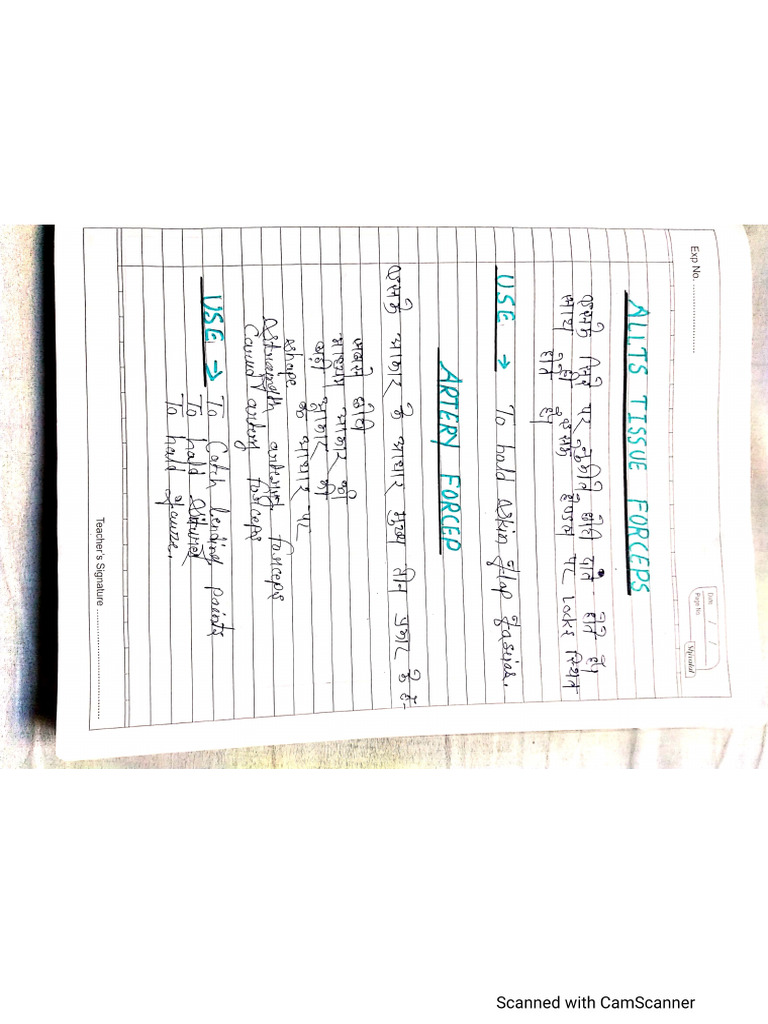 Exp No.
Date / /
Page No.
ALLTS TISSUE FORCEPS
इसके सिरे पर नुकीले दाँते होते है।
साथ ही इसके हैण्डल पर Locks स्थित
होते है।
USE → To hold skin flap fasiras.
ARTERY FORCEP
इसके आकार के आधार मुख्य तीन प्रकार के है-
सबसे छोटी
माध्यम आकार की
बड़ी आकार की
shape के आधार पर
Straigth artery forceps
artery forceps
USE → To Catch points
To hold
To hold gauze.
Teacher's Signature
Scanned with CamScanner